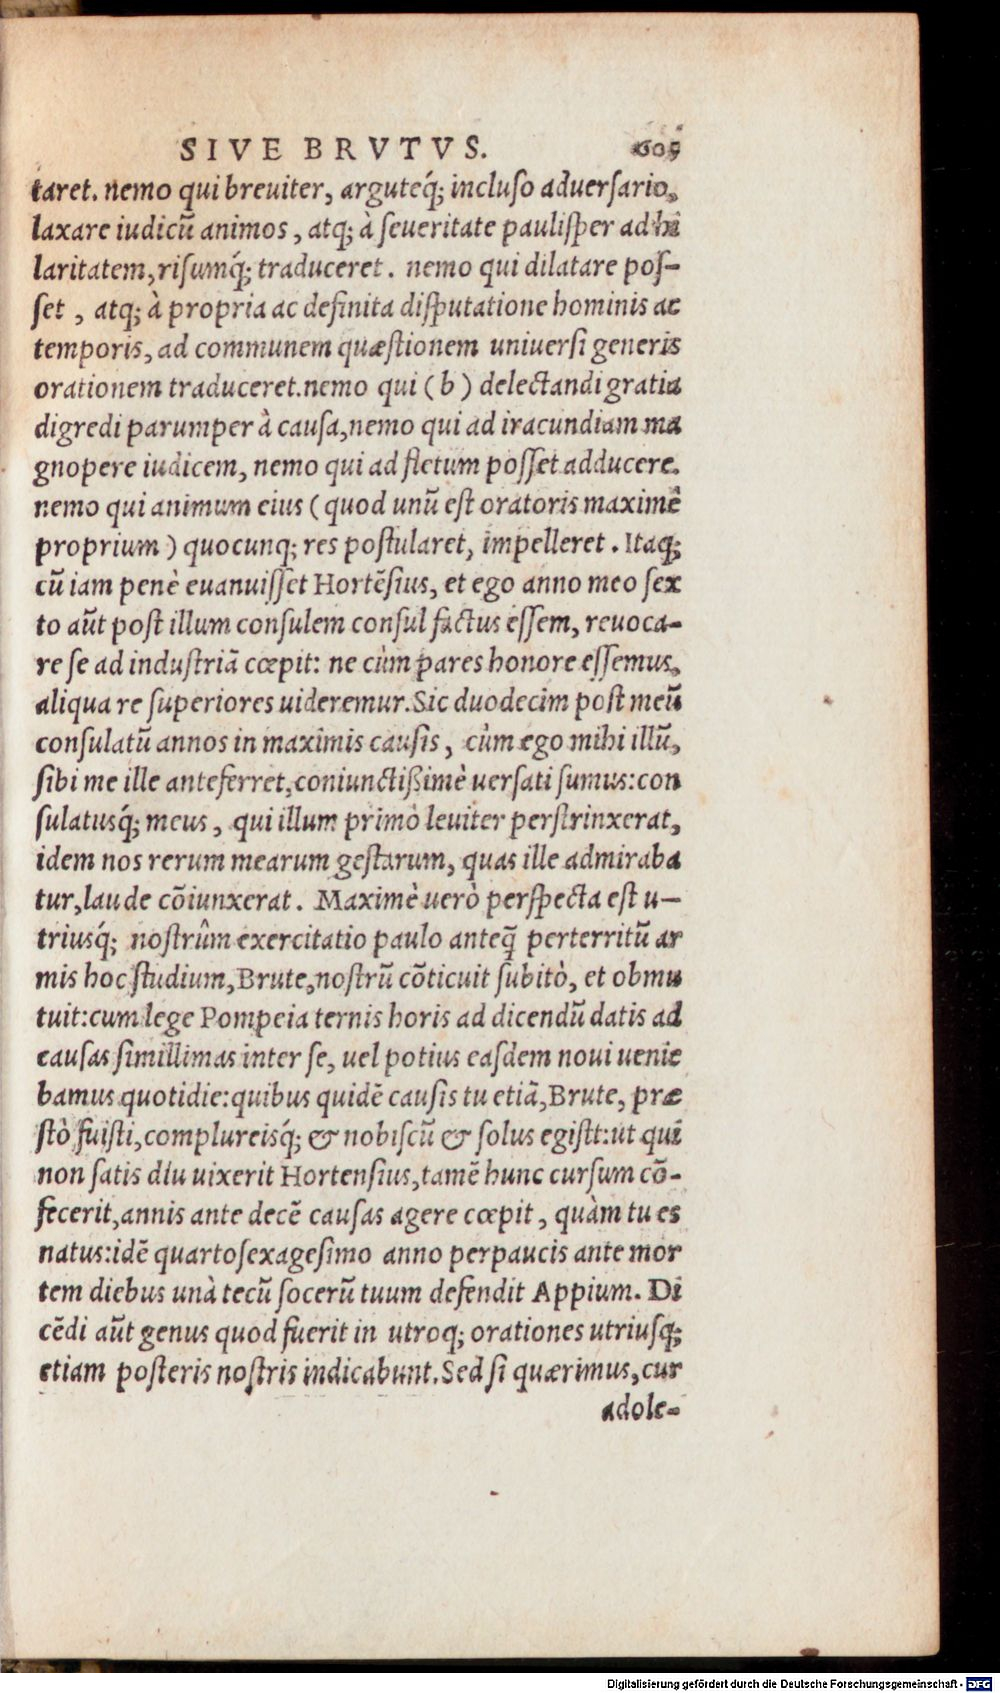 SIVE BRVTVS. 605
taret. nemo qui breuiter, arguteq́; incluso aduersario,
laxare iudicũ animos, atq; à seueritate paulisper ad hi
laritatem, risumq́; traduceret. nemo qui dilatare pos-
set, atq; à propria ac definita disputatione hominis ac
temporis, ad communem quæstionem uniuersi generis
orationem traduceret. nemo qui (b) delectandi gratia
digredi parumper à causa, nemo qui ad iracundiam ma
gnopere iudicem, nemo qui ad fletum posset adducere.
nemo qui animum eius (quod unũ est oratoris maximè
proprium) quocunq; res postularet, impelleret. Itaq;
cũ iam penè euanuisset Hortẽsius, et ego anno meo sex
to aũt post illum consulem consul factus essem, reuoca-
re se ad industriã cœpit: ne cùm pares honore essemus,
aliqua re superiores uideremur. Sic duodecim post meũ
consulatũ annos in maximis causis, cùm ego mihi illũ,
sibi me ille anteferret, coniunctißimè uersati sumus: con
sulatusq́; meus, qui illum primò leuiter perstrinxerat,
idem nos rerum mearum gestarum, quas ille admiraba
tur, laude cõiunxerat. Maximè uerò perspecta est u-
triusq́; nostrûm exercitatio paulo anteq̃ perterritũ ar
mis hoc studium, Brute, nostrũ cõticuit subitò, et obmu
tuit: cum lege Pompeia ternis horis ad dicendũ datis ad
causas simillimas inter se, uel potius easdem noui uenie
bamus quotidie: quibus quidẽ causis tu etiã, Brute, præ
stò fuisti, complureisq́; & nobiscũ & solus egisti: ut qui
non satis diu uixerit Hortensius, tamẽ hunc cursum cõ-
fecerit, annis ante decẽ causas agere cœpit, quàm tu es
natus: idẽ quarto sexagesimo anno perpaucis ante mor
tem diebus unà tecũ socerũ tuum defendit Appium. Di
cẽdi aũt genus quod fuerit in utroq; orationes utriusq;
etiam posteris nostris indicabunt. Sed si quærimus, cur
adole-
Digitalisierung gefördert durch die Deutsche Forschungsgemeinschaft - DFG